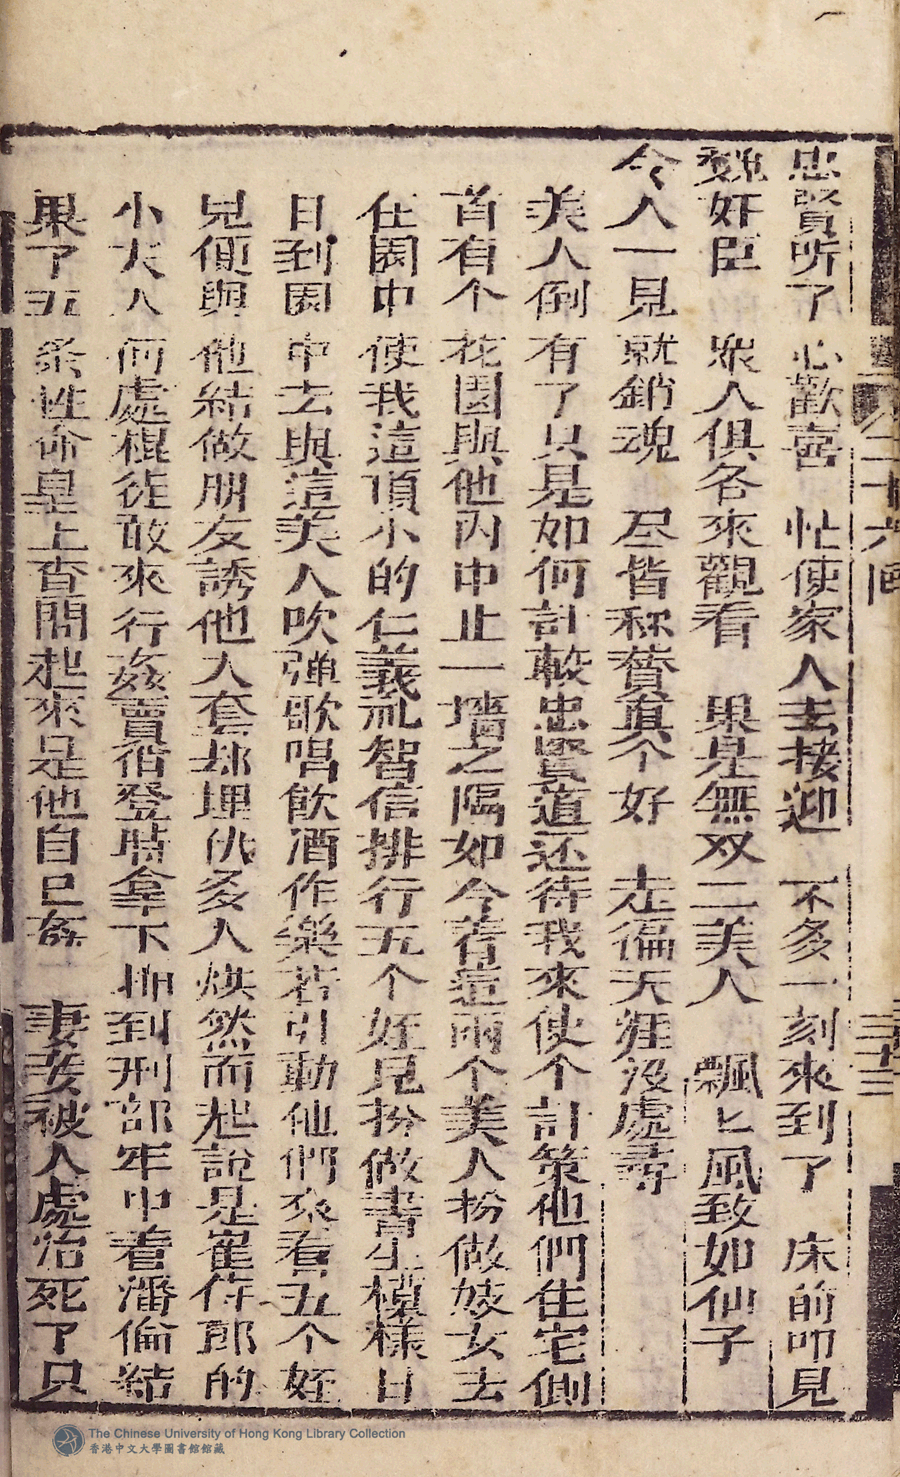 忠賢听了心歡喜　忙使家人去接迎　不多一刻來到了　床前叩見
魏奸臣　衆人俱各來觀看　果是無双二美人　飄匕風致如仙子
今人一見就銷魂　尽皆称贊真个好　走徧天涯没處尋
美人倒有了只是如何計較忠賢道还待我來使个計策他們住宅側
首有个花园與他内中止一墙之隔如今着這兩个美人扮做妓女去
住園中使我這頂小的仁義礼智信排行五个姪兒扮做書生模樣日
日到園中去與這美人吹弹歌唱飲酒作樂若引動他們來看五个姪
兒便與他結做朋友誘他入套却埋伏多人烘然而起說是崔侍郎的
小夫人何處棍徒敢來行姦賣俏登時拿下押到刑部牢中着潘倫結
果了五条性命皇上查問起來是他自己姦　妻妾被人處治死了只
二十六回
三十三
The Chinese University of Hong Kong Library Collection
香港中文大學圖書館館藏